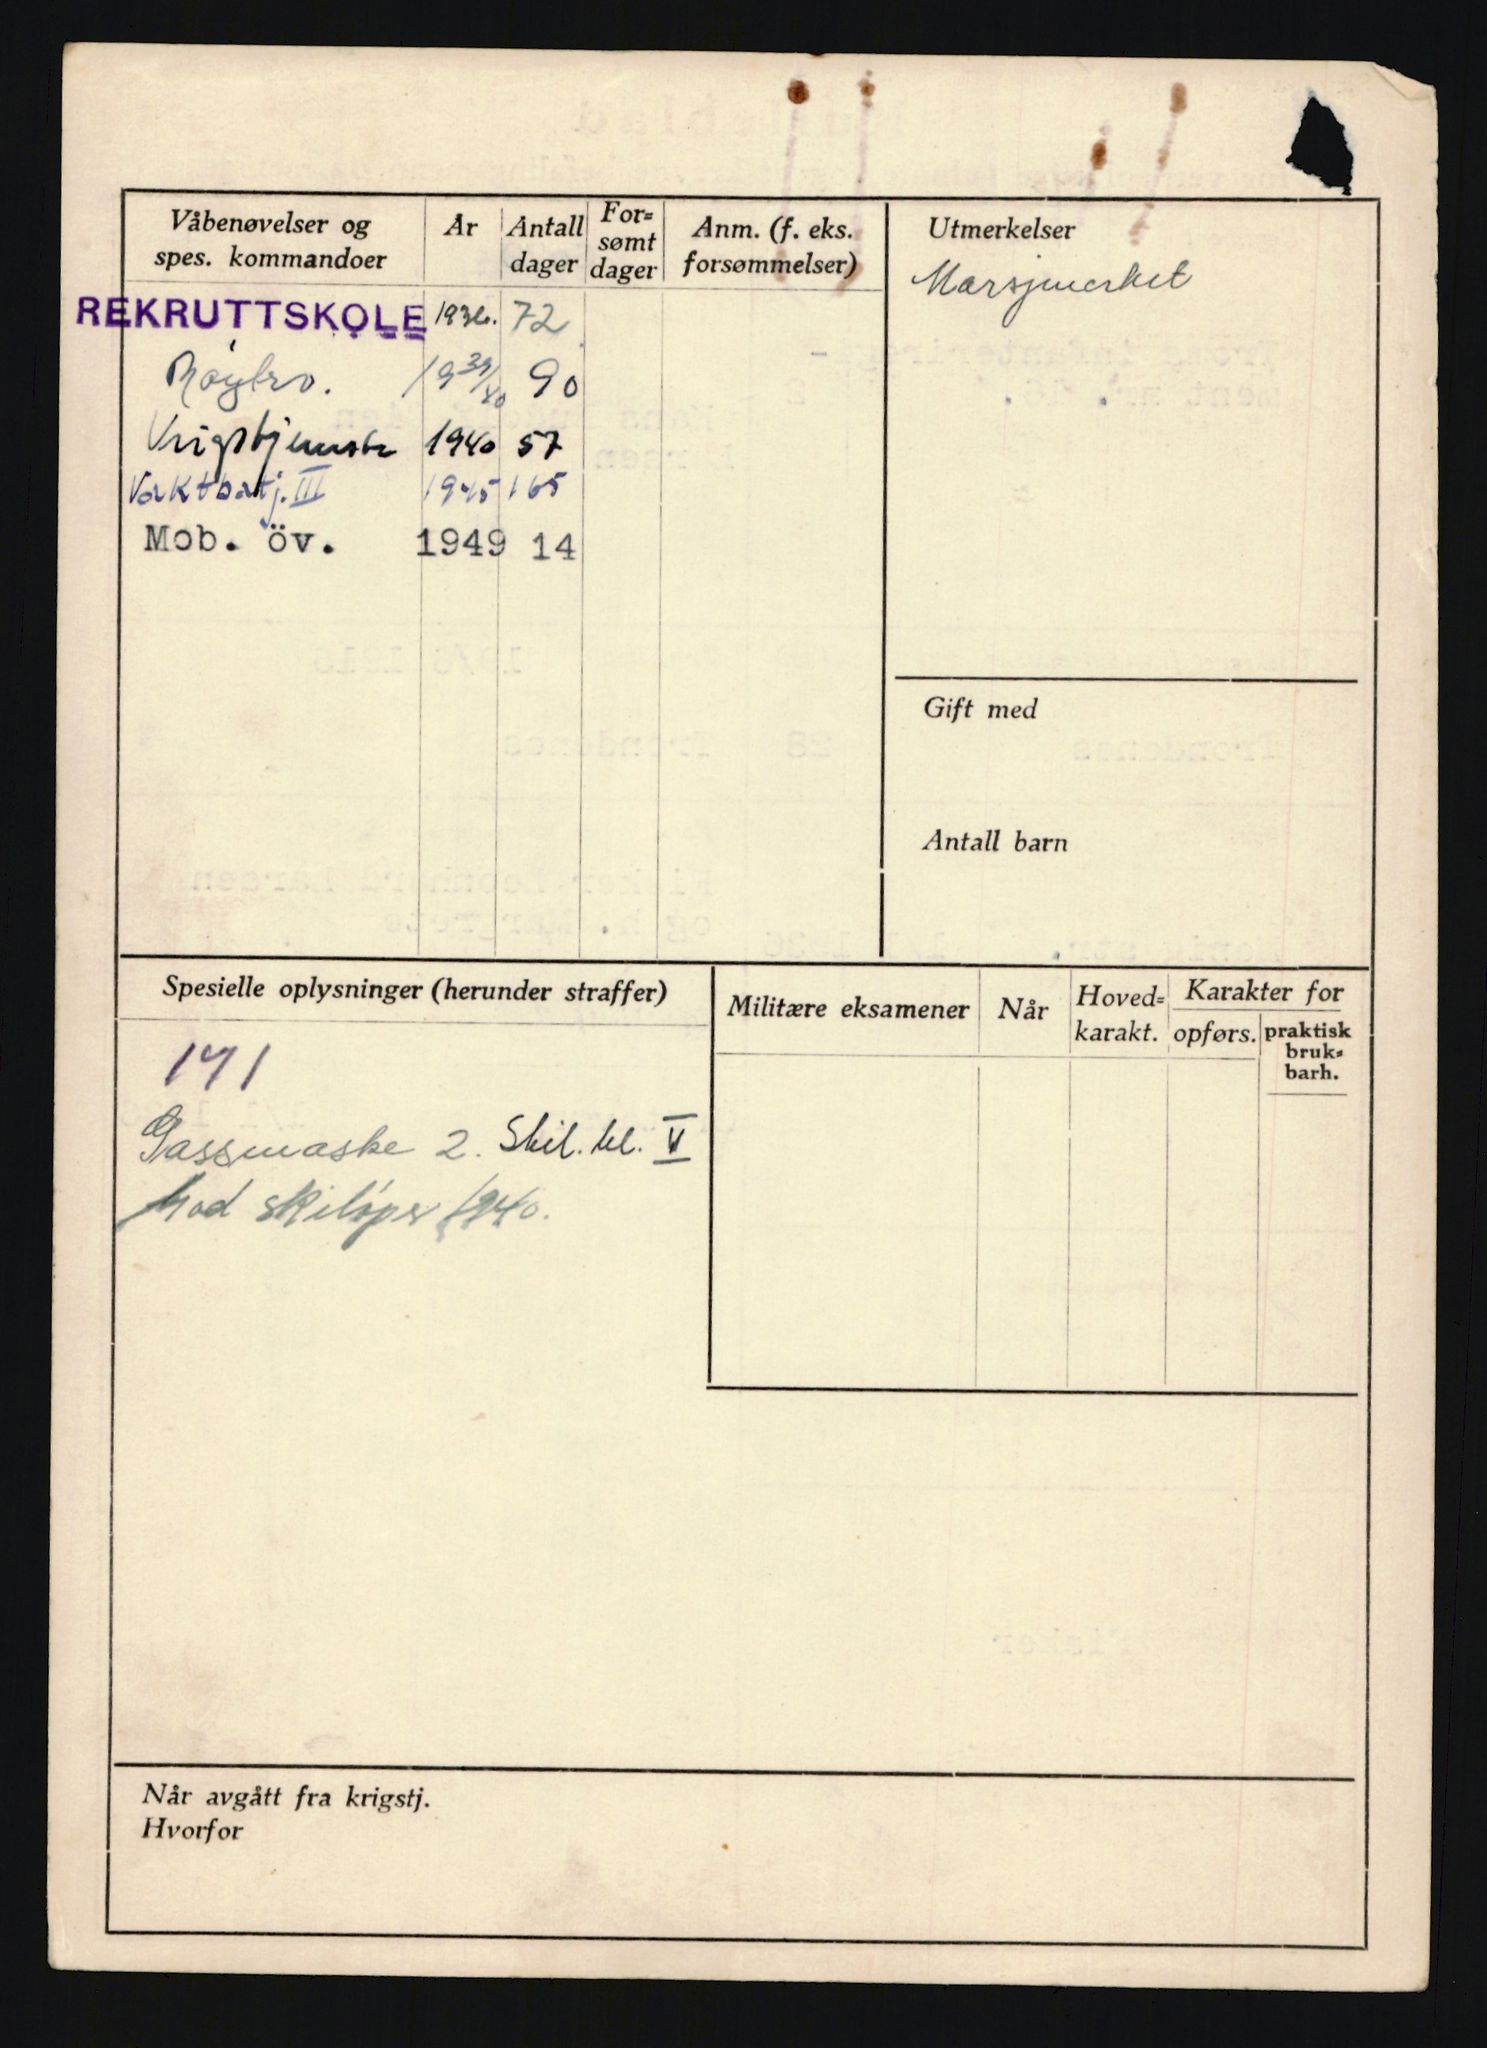 Våbenøvelser og spes. kommandoer
År
Antall dager
For= sømt dager
Anm. (f. eks. forsømmelser)
Utmerkelser
Marsjmerket
REKRUTTSKOLE 1936. 72
Nøytrv. 1939/40 90
Krigstjeneste 1940 57
Vaktbatj. III 1945 165
Mob. öv. 1949 14
Gift med
Antall barn
Spesielle oplysninger (herunder straffer)
Militære eksamener
Når
Hoved= karakt.
Karakter for
opførs.
praktisk bruk= barh.
171
Gassmaske 2. Skil. kl. V
God skiløper 1940.
Når avgått fra krigstj.
Hvorfor